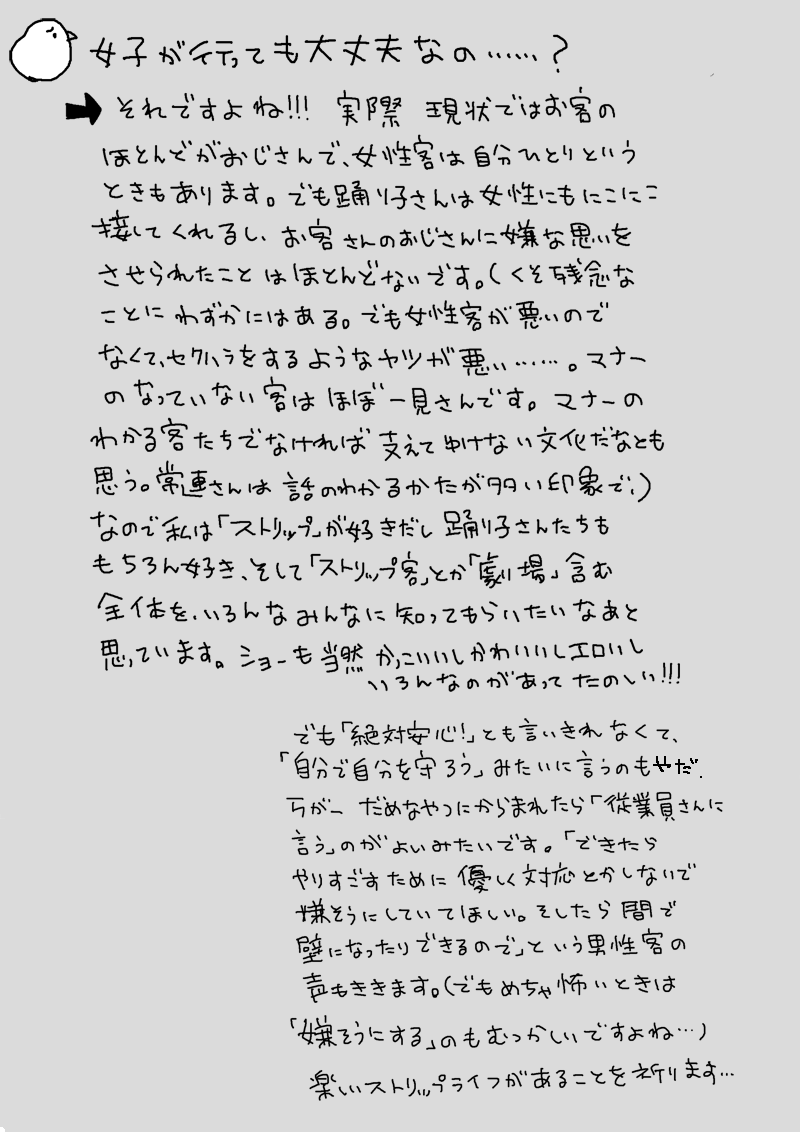 女子が行っても大丈夫なの……？
それですよね!!! 実際 現状ではお客の
ほとんどがおじさんで、女性客は自分ひとりという
ときもあります。でも踊り子さんは女性にもにこにこ
接してくれるし、お客さんのおじさんに嫌な思いを
させられたことはほとんどないです。(くそ残念な
ことにわずかにはある。でも女性客が悪いので
なくて、セクハラをするようなヤツが悪い……。マナー
のなっていない客はほぼ一見さんです。マナーの
わかる客たちでなければ支えてゆけない文化だなとも
思う。常連さんは話のわかるかたが多い印象で、)
なので私は「ストリップ」が好きだし踊り子さんたちも
もちろん好き、そして「ストリップ客」とか「劇場」含む
全体を、いろんなみんなに知ってもらいたいなあと
思っています。ショーも当然 かっこいいしかわいいしエロいし
いろんなのがあってたのしい!!!
でも「絶対安心!」とも言いきれなくて、
「自分で自分を守ろう」みたいに言うのもやだ.
万が一 だめなやつにからまれたら「従業員さんに
言う」のがよいみたいです。「できたら
やりすごすために優しく対応とかしないで
嫌そうにしていてほしい。そしたら間で
壁になったりできるので」という男性客の
声もききます。(でもめちゃ怖いときは
「嫌そうにする」のもむつかしいですよね…)
楽しいストリップライフがあることを祈ります…